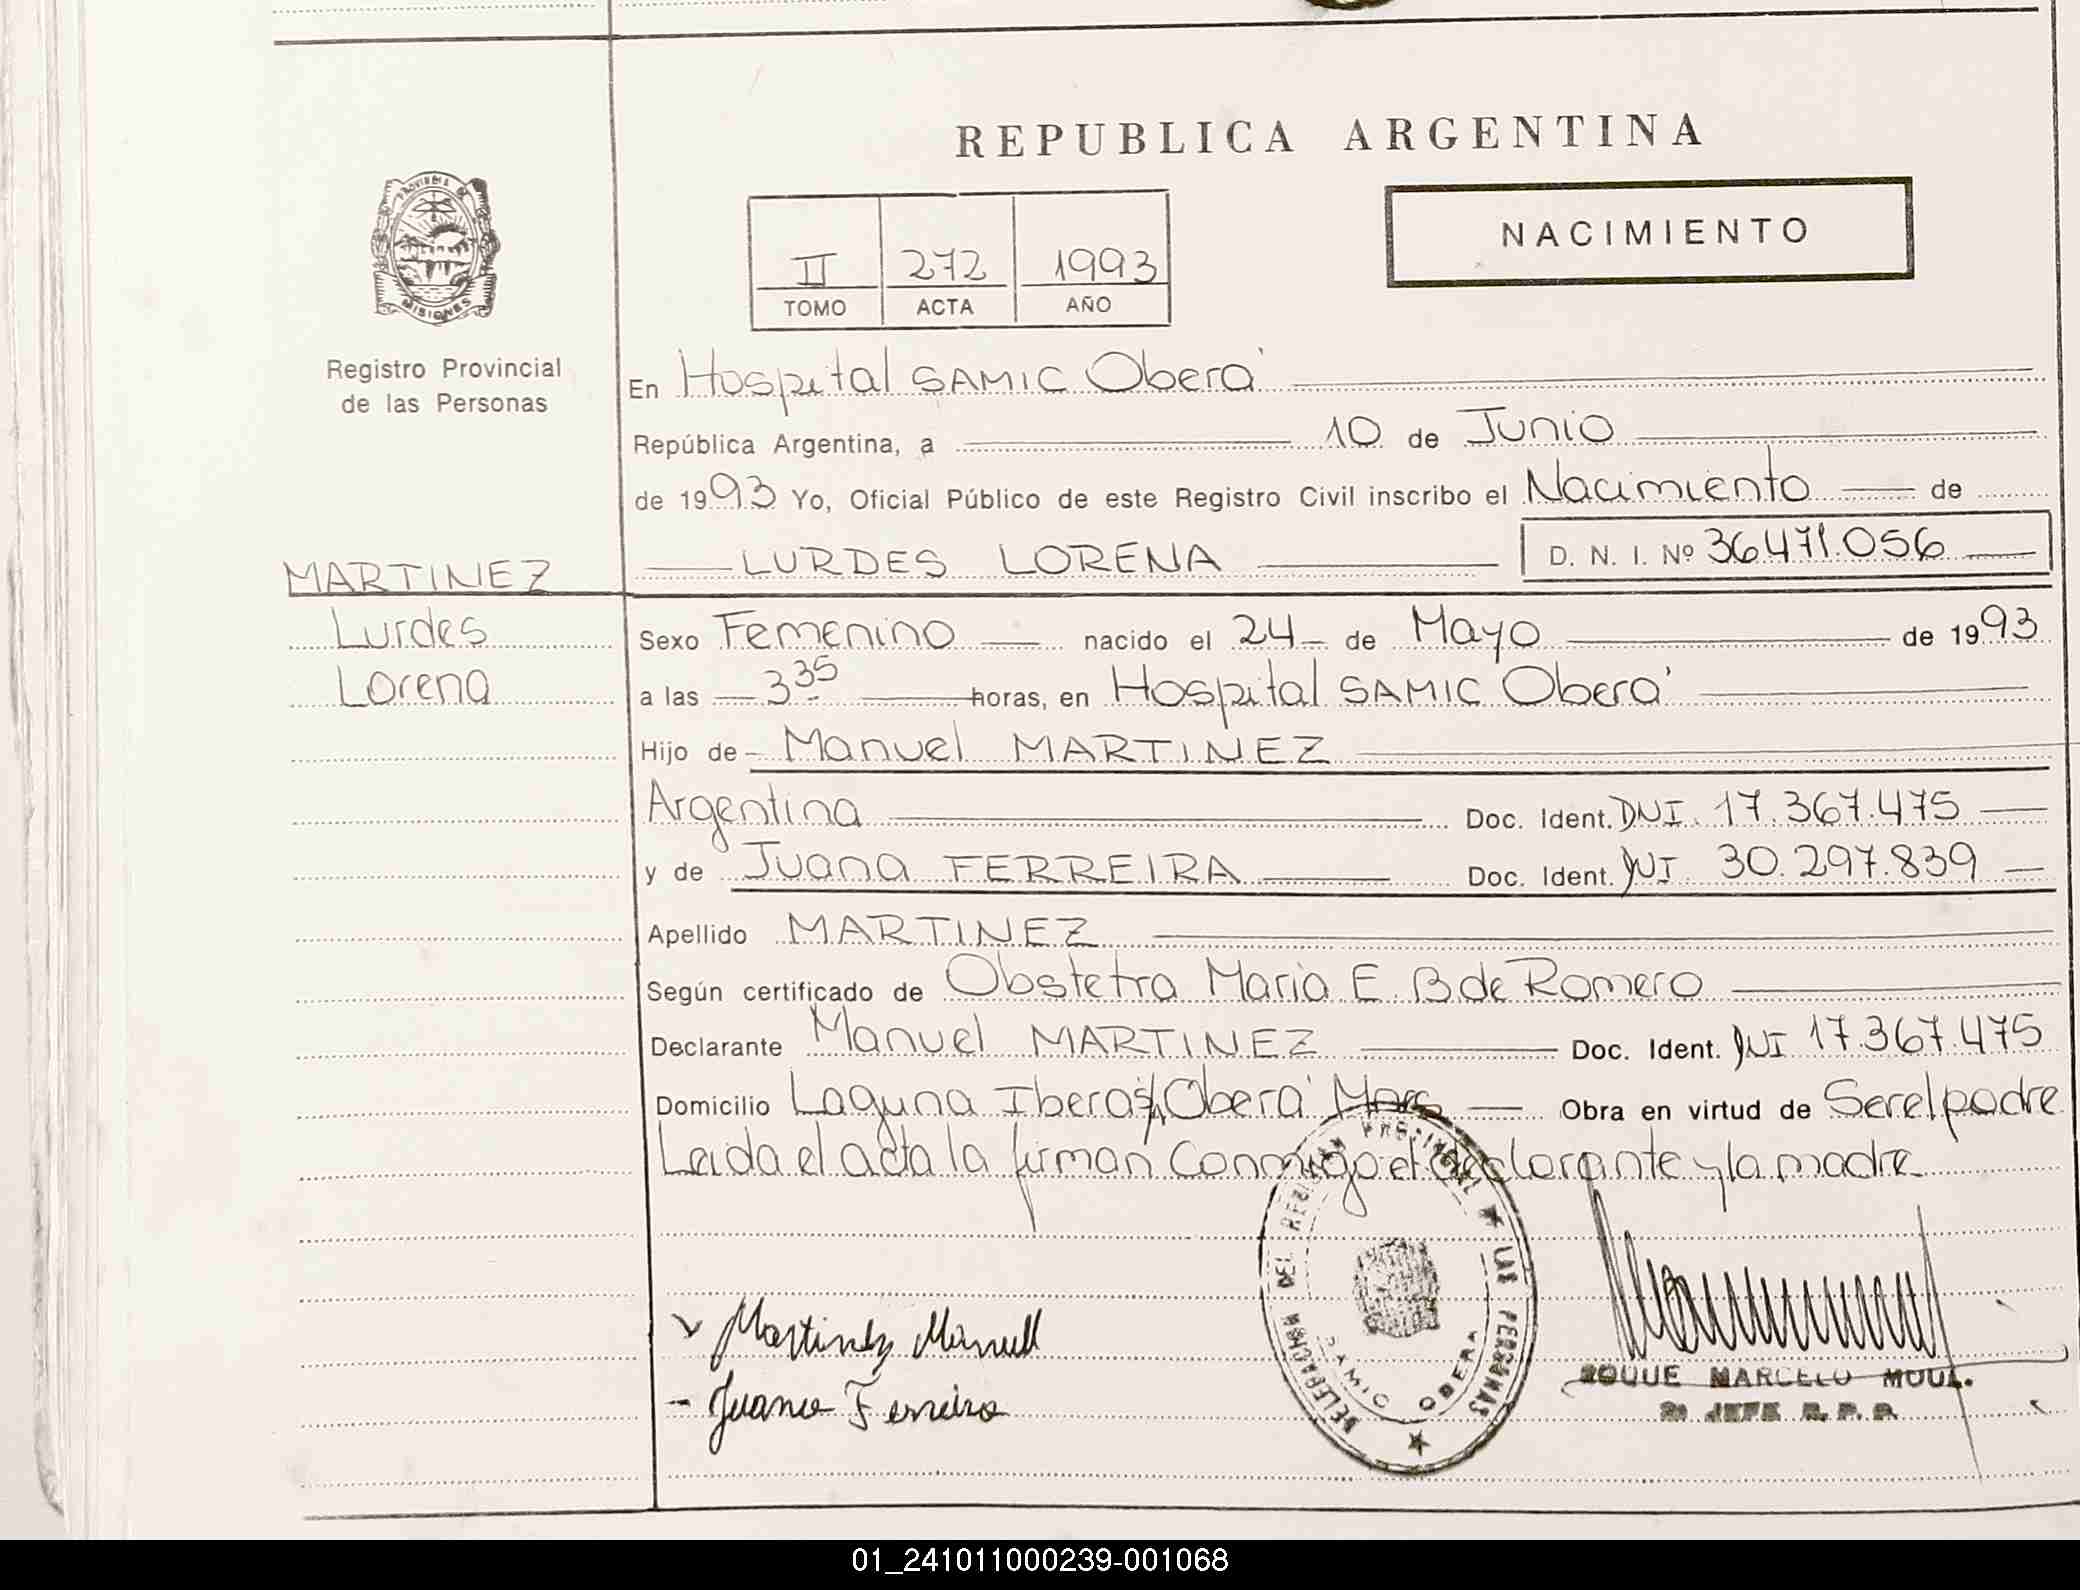 REPUBLICA ARGENTINA
PROVINCIA DE
MISIONES
Registro Provincial
de las Personas
II 272 1993
TOMO ACTA AÑO
NACIMIENTO
En Hospital SAMIC Oberá
República Argentina, a 10 de Junio
de 1993 Yo, Oficial Público de este Registro Civil inscribo el Nacimiento de
LURDES LORENA D. N. I. Nº 36.471.056
MARTINEZ
Lurdes
Lorena
Sexo Femenino nacido el 24 de Mayo de 1993
a las 3 35 horas, en Hospital SAMIC Oberá
Hijo de Manuel MARTINEZ
Argentina Doc. Ident. DNI. 17.367.475
y de Juana FERREIRA Doc. Ident. DNI. 30.297.839
Apellido MARTINEZ
Según certificado de Obstetra Maria E B de Romero
Declarante Manuel MARTINEZ Doc. Ident. DNI 17.367.475
Domicilio Laguna Ibera s/n Oberá Mnes Obra en virtud de Ser el padre
Leida el acta la firman Conmigo el declarante y la madre
DELEGACION DEL REGISTRO PROVINCIAL DE LAS PERSONAS
SAMIC OBERA
Martinez Manuel
Juana Ferreira
ROQUE MARCELO
2º JEFE R. P. P.
01_241011000239-001068